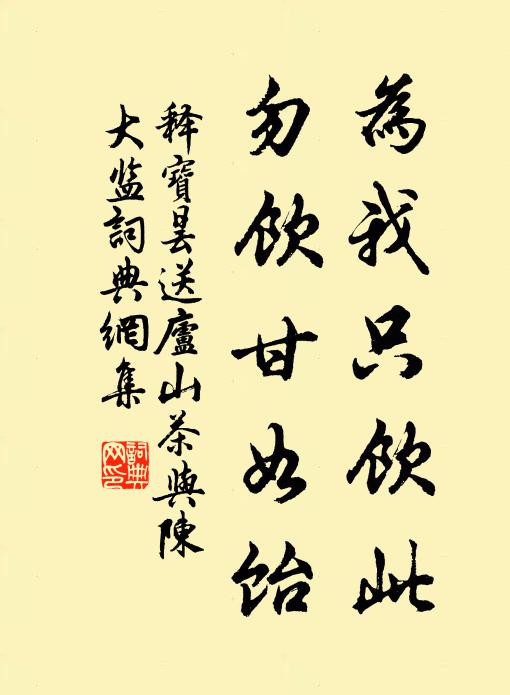 為我只飲此
勿飲甘如飴
釋寶曇送廬山茶與陳
大監詞典網集
詞典
网印